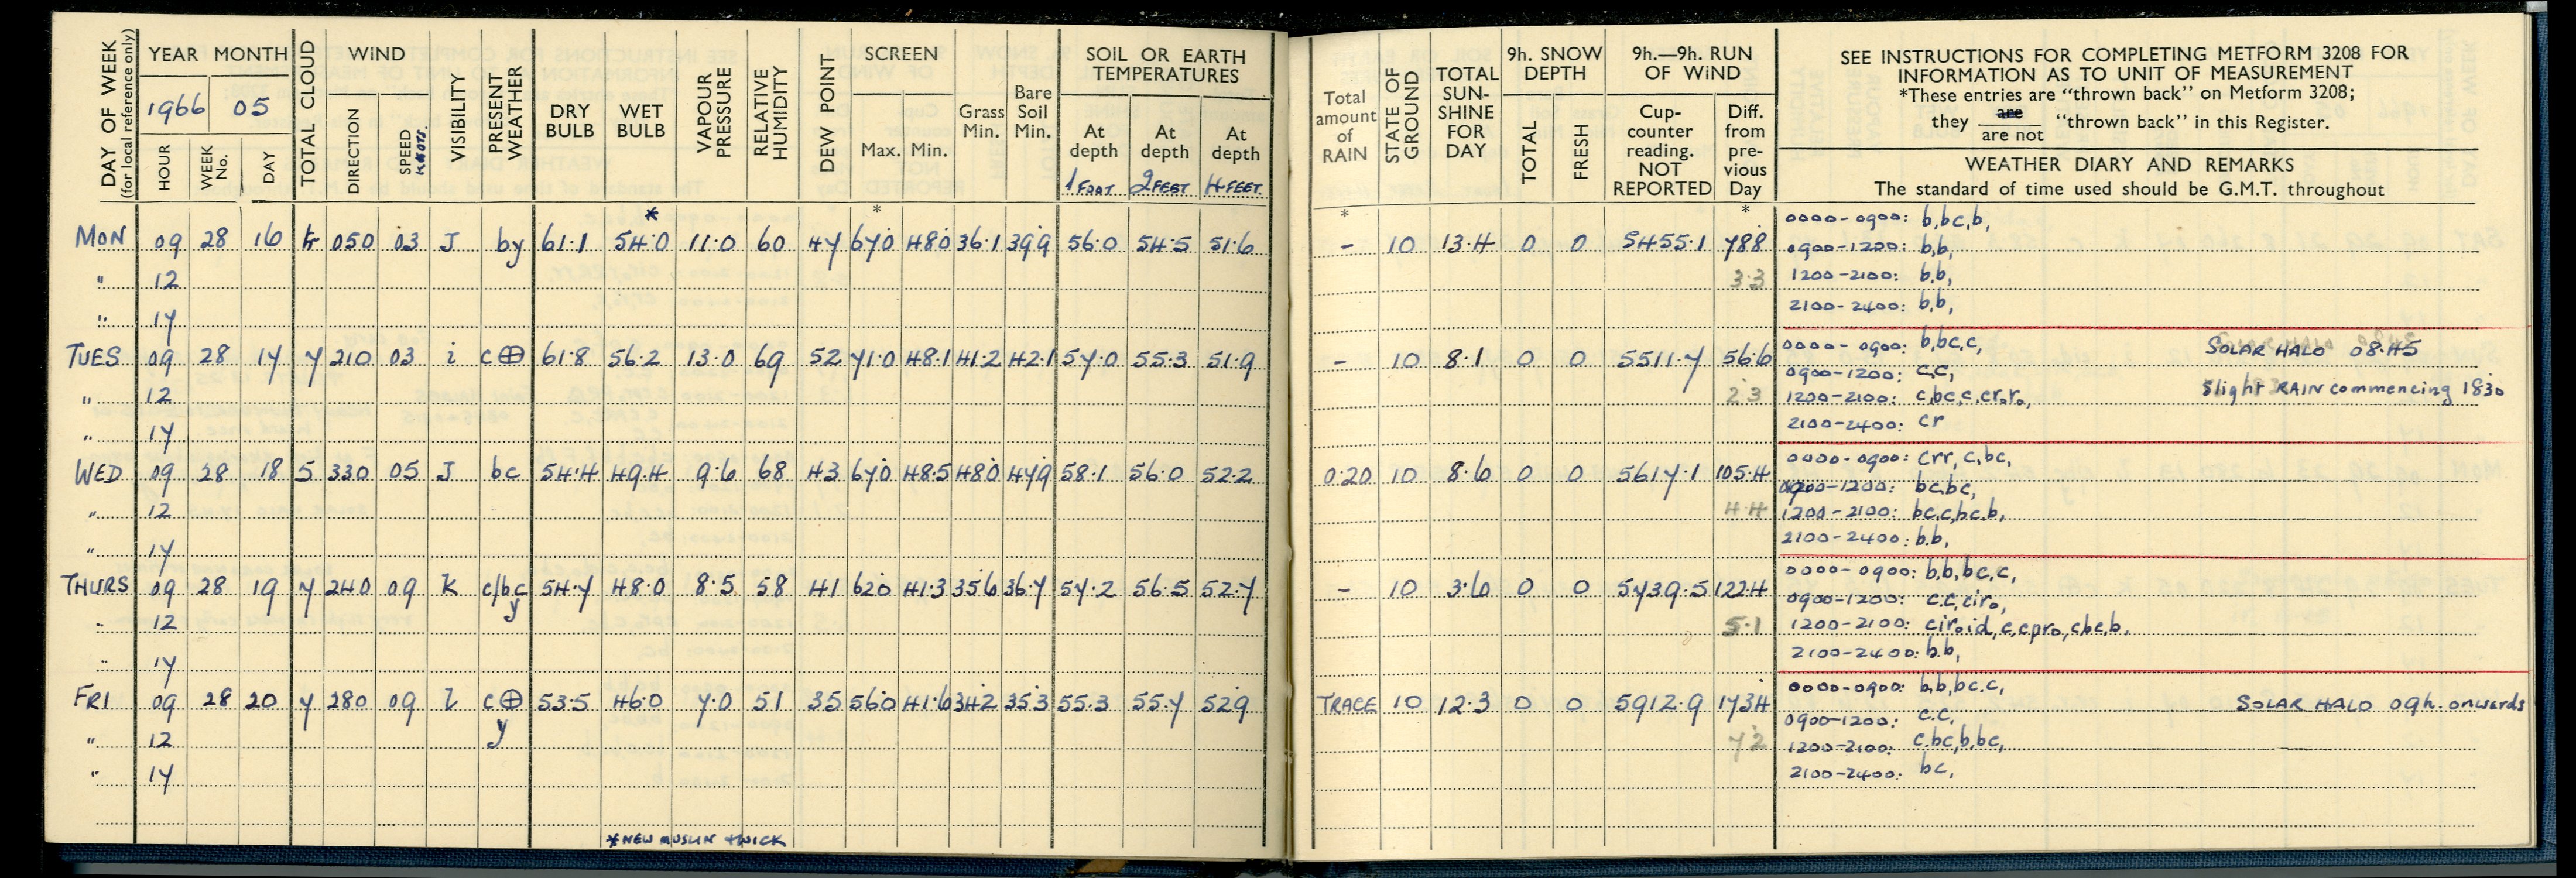 DAY OF WEEK (for local reference only)
YEAR MONTH
1966 05
HOUR WEEK No. DAY
TOTAL CLOUD
WIND
DIRECTION SPEED KNOTS
VISIBILITY
PRESENT WEATHER
DRY BULB
WET BULB
VAPOUR PRESSURE
RELATIVE HUMIDITY
DEW POINT
SCREEN
Max. Min.
Grass Min.
Bare Soil Min.
SOIL OR EARTH TEMPERATURES
At depth 1 FOOT
At depth 2 FEET
At depth 4 FEET
Total amount of RAIN
STATE OF GROUND
TOTAL SUN-SHINE FOR DAY
9h. SNOW DEPTH
TOTAL FRESH
9h.—9h. RUN OF WIND
Cup-counter reading. NOT REPORTED
Diff. from pre-vious Day
SEE INSTRUCTIONS FOR COMPLETING METFORM 3208 FOR
INFORMATION AS TO UNIT OF MEASUREMENT
*These entries are “thrown back” on Metform 3208;
they are / are not “thrown back” in this Register.
WEATHER DIARY AND REMARKS
The standard of time used should be G.M.T. throughout
* * * *
MON 09 28 16 tr 050 03 J by 61.1 54.0 11.0 60 47 67.0 48.0 36.1 39.9 56.0 54.5 51.6 - 10 13.4 0 0 5455.1 78.8
0000-0900: b,bc,b,
0900-1200: b,b,
" 12 3.3
1200-2100: b,b,
2100-2400: b,b,
" 17
TUES 09 28 17 7 210 03 i c⊕ 61.8 56.2 13.0 69 52 71.0 48.1 41.2 42.1 57.0 55.3 51.9 - 10 8.1 0 0 5511.7 56.6
0000-0900: b,bc,c, SOLAR HALO 08.45
0900-1200: c,c,
" 12 2.3
1200-2100: c,bc,c,cr₀r₀, Slight RAIN commencing 1830
2100-2400: cr
" 17
WED 09 28 18 5 330 05 J bc 54.4 49.4 9.6 68 43 67.0 48.5 48.0 47.9 58.1 56.0 52.2 0.20 10 8.6 0 0 5617.1 105.4
0000-0900: crr, c,bc,
0900-1200: bc,bc,
" 12 4.4
1200-2100: bc,c,bc,b,
2100-2400: b.b,
" 17
THURS 09 28 19 7 240 09 K c/bc y 54.7 48.0 8.5 58 41 62.0 41.3 35.6 36.7 57.2 56.5 52.7 - 10 3.6 0 0 5739.5 122.4
0000-0900: b,b,bc,c,
0900-1200: c.c,cir₀,
" 12 5.1
1200-2100: cir₀id,c,cpr₀,cbc,b,
2100-2400: b.b,
" 17
FRI 09 28 20 7 280 09 l c⊕ y 53.5 46.0 7.0 51 35 56.0 41.6 34.2 35.3 55.3 55.7 52.9 TRACE 10 12.3 0 0 5912.9 173.4
0000-0900: b,b,bc.c,
SOLAR HALO 09h. onwards
0900-1200: c.c,
" 12 7.2
1200-2100: c,bc,b,bc,
2100-2400: bc,
" 17
*NEW MUSLIN + WICK